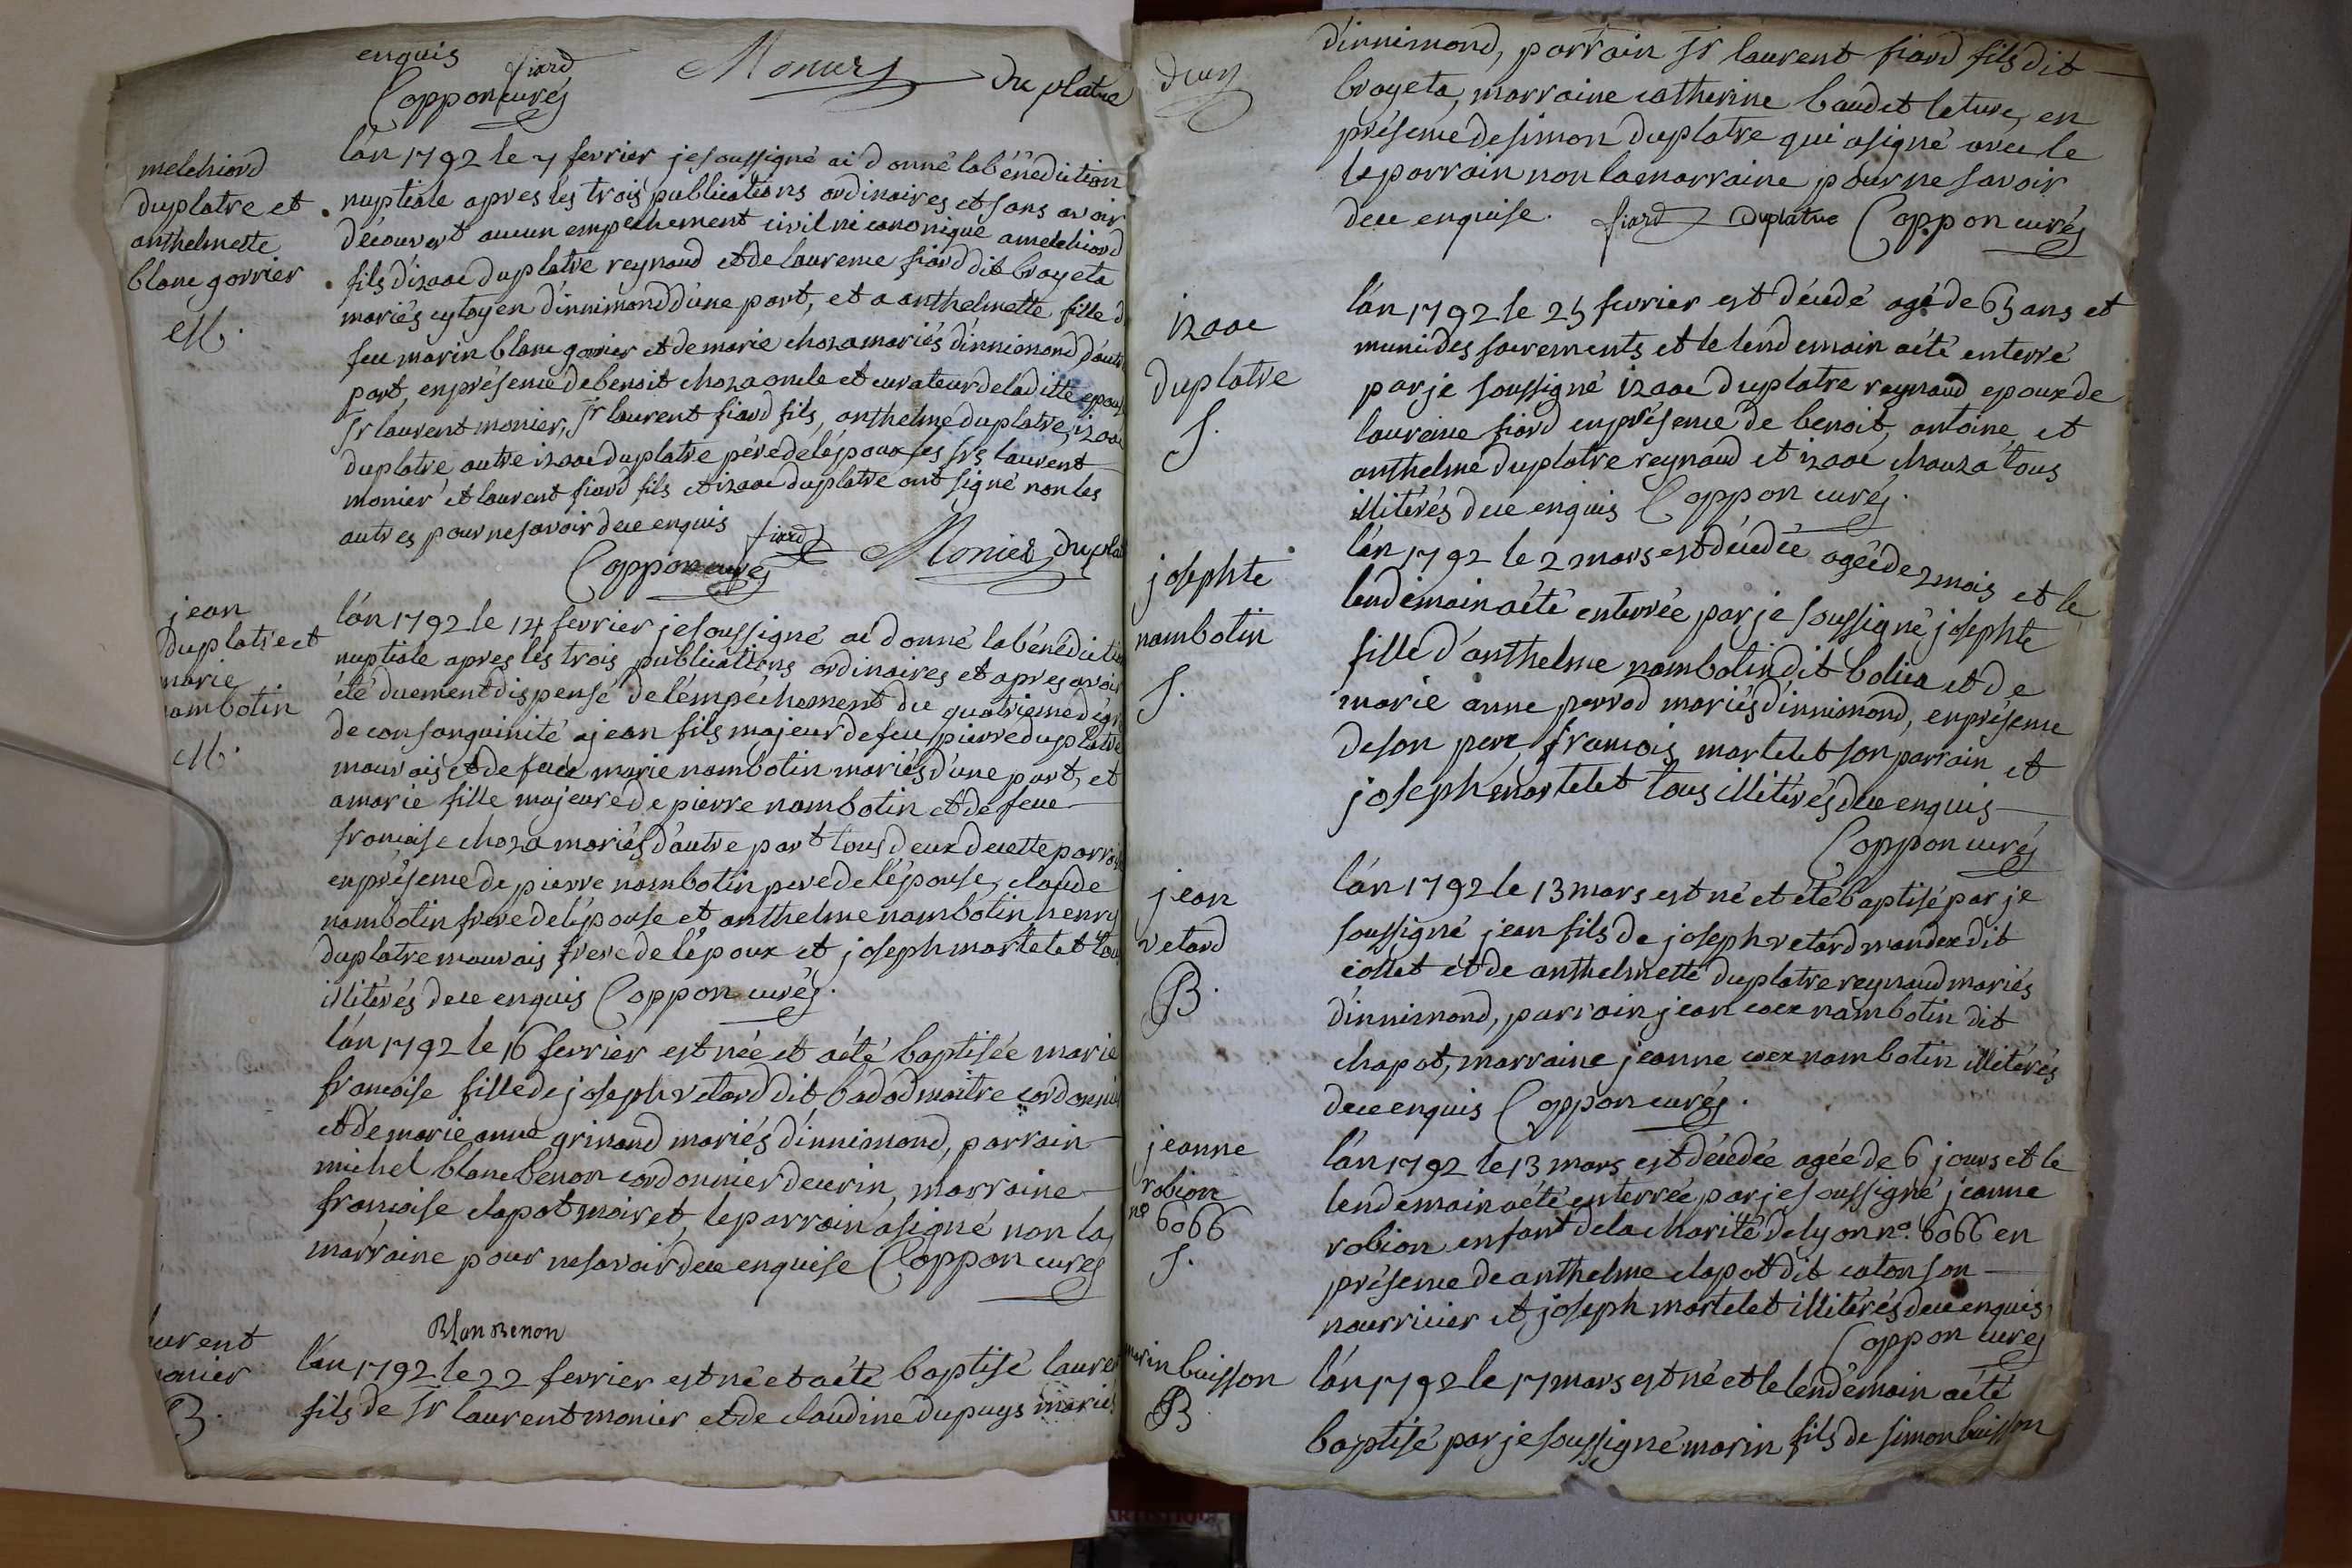 enquis
Coppon curés fiard Monier du platre
melchiord
duplatre et
anthelmette
blanc gorrier
M.
l'an 1792 le 7 fevrier je soussigné ai donné la bénédiction
nuptiale apres les trois publications ordinaires et sans avoir
découvert aucun empechement civil ni canonique a melchiord
fils d'izaac duplatre reynaud et de laurence fiard dit brayeta
mariés cytoyen d'innimond d'une part, et a anthelmette fille d
feu marin blanc gorrier et de marie choza mariés d'innimond d'autr
part, en présence de benoit choza oncle et curateur de laditte epous
Sr laurent monier, Sr laurent fiard fils, anthelme duplatre, izaac
duplatre autre izaac duplatre pére de l'époux les Srs laurent
monier et laurent fiard fils et izaac duplatre ont signé non les
autres pour ne savoir de ce enquis fiard
Coppon curés Monier duplat
jean
duplatre et
marie
nambotin
M.
l'an 1792 le 14 fevrier je soussigné ai donné la bénédiction
nuptiale apres les trois publications ordinaires et apres avoir
été duement dispensé de l'empéchement du quatrieme dégré
de consanguinité a jean fils majeur de feu pierre duplatre
mauvais et de feue marie nambotin mariés d'une part, et
a marie fille majeure de pierre nambotin et de feue
francoise choza mariés d'autre part tous deux de cette parroi
en présence de pierre nambotin pere de l'épouse, claude
nambotin frere de l'épouse et anthelme nambotin henry
duplatre mauvais frere de l'époux et joseph martelet tous
illitérés de ce enquis Coppon curés.
l'an 1792 le 16 fevrier est née et a été baptisée marie
francoise fille de joseph vetard dit badod maitre cordonnie
et de marie anne grinand mariés d'innimond, parrain
michel blanc benon cordonnier de cerin, marraine
francoise clapot moiret, le parrain a signé non la
marraine pour ne savoir de ce enquise Coppon curés
Blan Benon
laurent
monier
B.
l'an 1792 le 22 fevrier est né et a été baptisé laurent
fils de Sr laurent monier et de claudine dupuys mariés
d'innimond, parrain Sr laurent fiard fils dit
brayeta, marraine catherine baudet leture, en
présence de simon duplatre qui a signé avec le
le parrain non la marraine pour ne savoir
de ce enquise. fiard Duplatre Coppon curés
izaac
duplatre
S.
l'an 1792 le 25 fevrier est décédé agé de 65 ans et
muni des sacrements et le lendemain a été enterré
par je soussigné izaac duplatre reynaud epoux de
laurence fiard en présence de benoit, antoine et
anthelme duplatre reynaud et izaac chauza tous
illitérés de ce enquis Coppon curés.
josephte
nambotin
S.
l'an 1792 le 2 mars est décédée agée de 2 mois et le
lendemain a été enterrée par je soussigné josephte
fille d'anthelme nambotin dit bolica et de
marie anne perrod mariés d'innimond, en présence
de son pere, francois martelet son parrain et
joseph martelet tous illitérés de ce enquis
Coppon curés
jean
vetard
B.
l'an 1792 le 13 mars est né et été baptisé par je
soussigné jean fils de joseph vetard mandex dit
collet et de anthelmette duplatre reynaud mariés
d'innimond, parrain jean coex nambotin dit
chapot, marraine jeanne coex nambotin illitérés
de ce enquis Coppon curés.
jeanne
robion
no 6066
S.
l'an 1792 le 13 mars est décédée agée de 6 jours et le
lendemain a été enterrée par je soussigné jeanne
robion enfant de la charité de lyon no. 6066 en
présence de anthelme clapot dit caton son
nourricier et joseph martelet illitérés de ce enquis
Coppon curés
marin buisson
B
l'an 1792 le 17 mars est né et le lendemain a été
baptisé par je soussigné marin fils de simon buisson